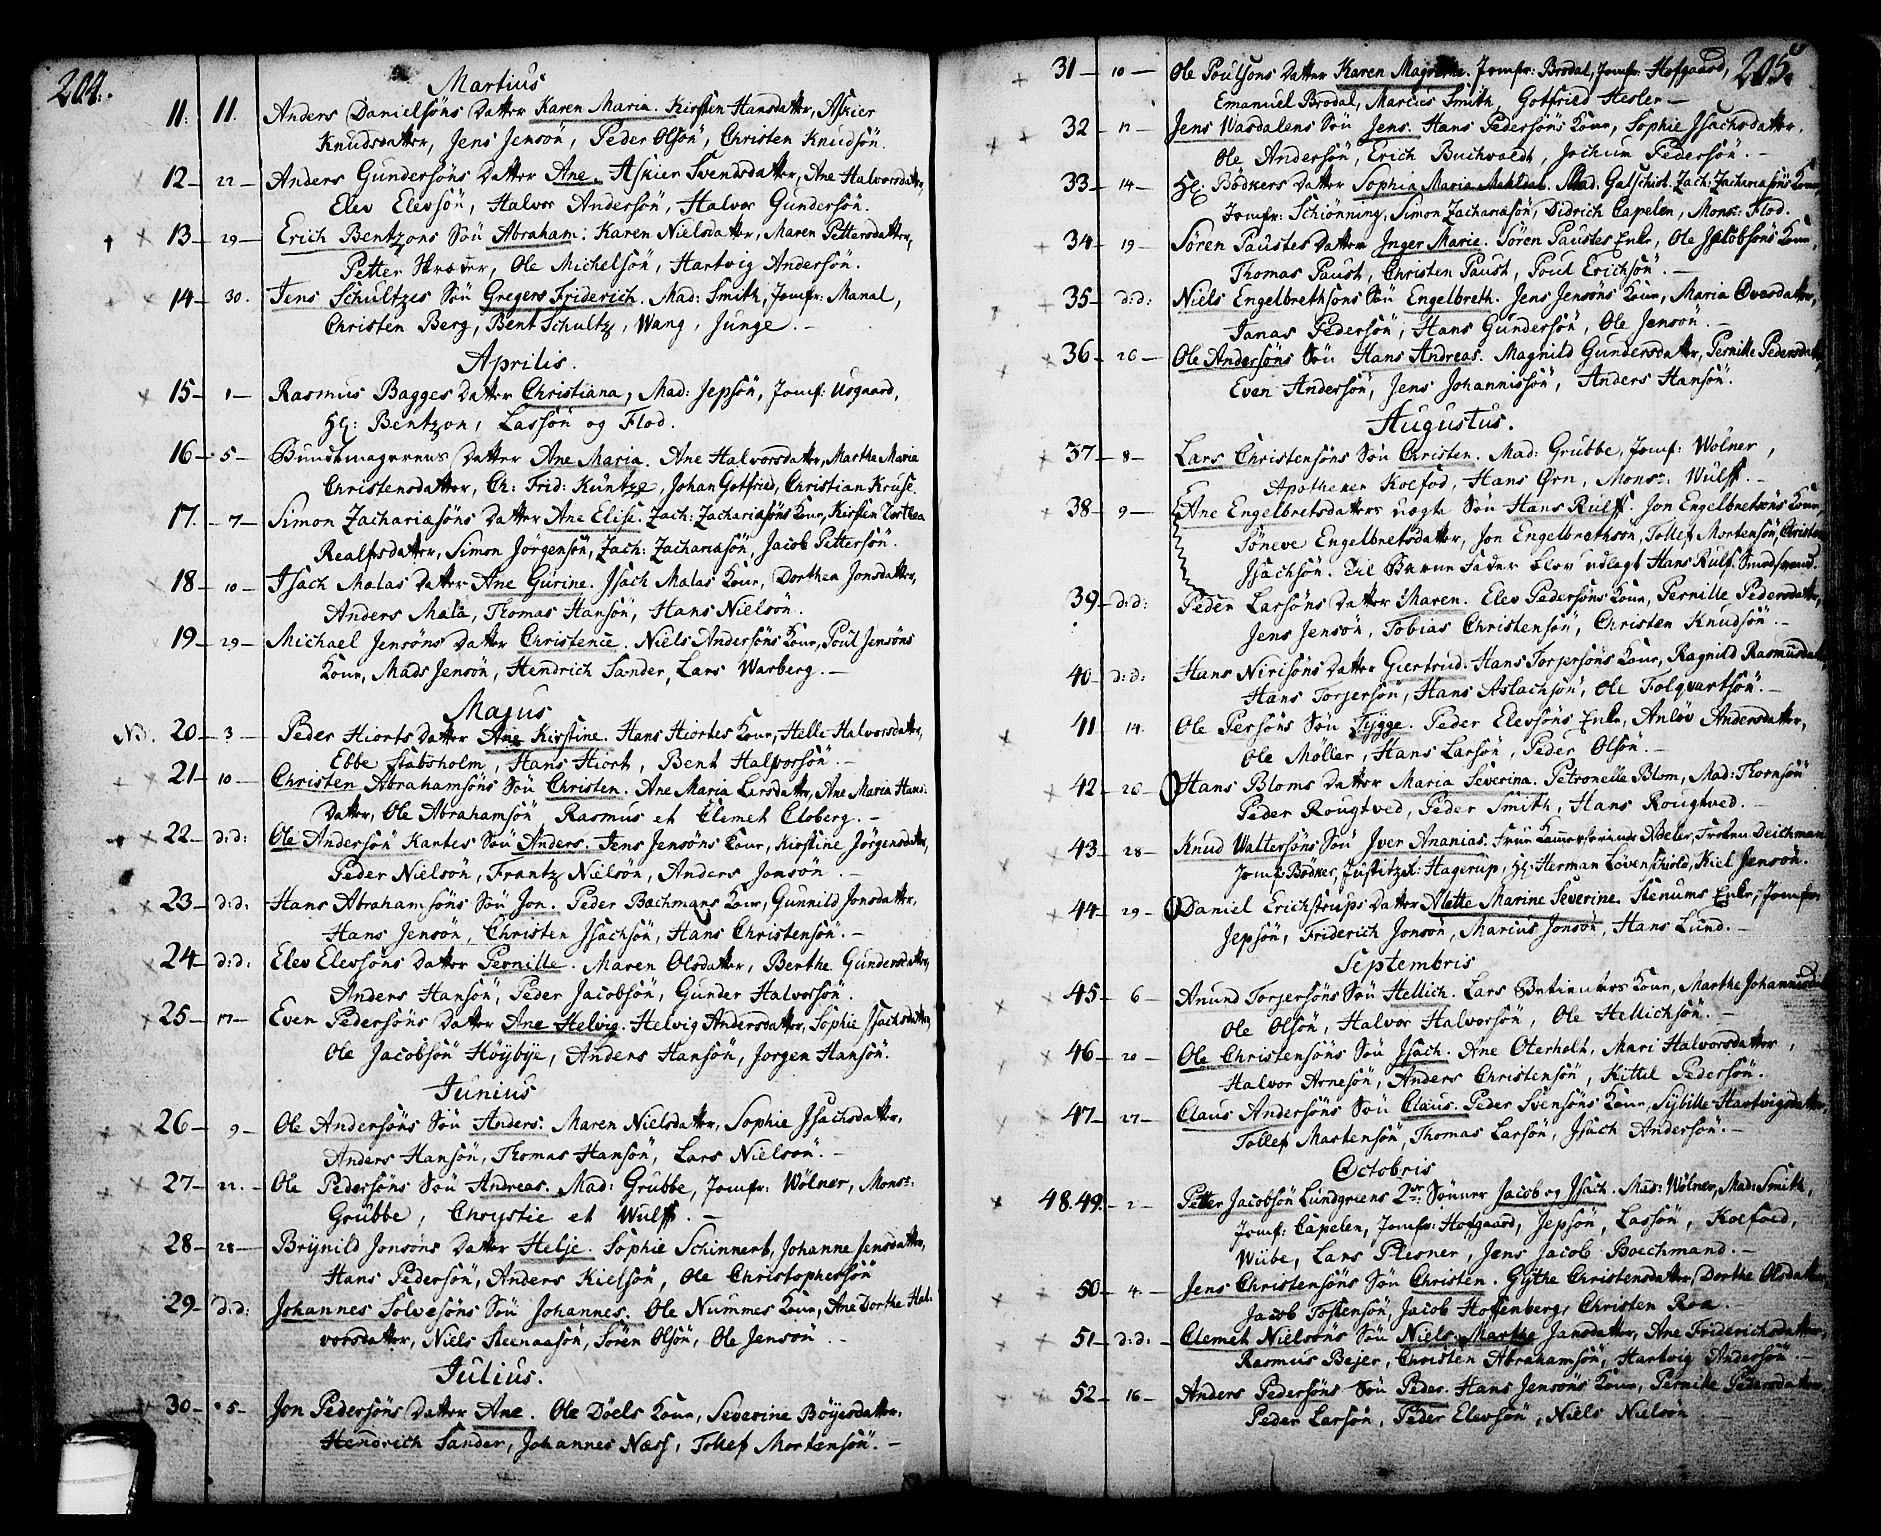 204.
Martius
11. 11. Anders Danielsöns Datter Karen Maria. Kirsten Hansdatter, Askier
Knudsdatter, Jens Jensön, Peder Olsön, Christen Knudsön.
12 - 22 - Anders Gundersöns Datter Ane. Askier Svendsdatter, Ane Halvorsdatter,
Elev Elevsön, Halvor Andersön, Halvor Gundersön.
13 - 29 - Erich Bentzons Sön Abraham. Karen Nielsdatter, Maren Pettersdatter,
Petter Stræer, Ole Michelsön, Hartvig Andersön.
14 - 30. Jens Schultzes Sön Gregers Friderich. Mad: Smith, Jomfr: Manal,
Christen Berg, Bent Schultz, Wang, Junge. -
Aprilis.
15 - 1 - Rasmus Bagges Datter Christiana, Mad: Jepsön, Jomf: Usgaard,
Hr: Bentzon, Lassön og Flod.
16 - 5 - Bundtmagerens Datter Ane Maria. Ane Halvorsdatter, Marthe Maria
Christensdatter, Ch: Frid: Küntze, Johan Gotfried, Christian Kruse.
17. - 7 - Simon Zachariæsöns Datter Ane Elise. Zach: Zachariæsöns Kone, Kirsten Dorthea
Realfsdatter, Simon Jörgensön, Zach: Zachariæsön, Jacob Pettersön.
18 - 10 - Isach Malas Datter Ane Gurine. Isach Malas Kone, Dorthea Jonsdatter,
Anders Mala, Thomas Hansön, Hans Nielsön.
19 - 29 - Michael Jensöns Datter Christence. Niels Andersöns Kone, Poul Jensöns
Kone, Mads Jensön, Hendrich Sander, Lars Warberg. -
Majus
NB. 20 - 3 - Peder Hiorts Datter Ane Kirstine. Hans Hiortes Kone, Helle Halvorsdatter,
Ebbe Stabsholm, Hans Hiort, Bent Halvorsön. -
21 - 10 - Christen Abrahamsöns Sön Christen. Ane Maria Larsdatter, Ane Maria Hans-
Datter, Ole Abrahamsön, Rasmus et Clemet Cloberg. -
22 - d:d: Ole Andersön Kantes Sön Anders. Jens Jensöns Kone, Kirstine Jörgensdatter,
Peder Nielsön, Frantz Nielsön, Anders Jonsön. -
23 - d:d: Hans Abrahamsöns Sön Jon. Peder Bachmans Kone, Gunnild Jonsdatter,
Hans Jensön, Christen Isachsön, Hans Christensön. -
24 - d:d: Elev Elevsöns Datter Pernille. Maren Olsdatter, Berthe Gundersdatter,
Anders Hansön, Peder Jacobsön, Gunder Halvorsön.
25 - 17 - Even Pedersöns Datter Ane Helvig. Helvig Andersdatter, Sophie Isachsdatter,
Ole Jacobsön Höybye, Anders Hansön, Jorgen Hansön.
Junius
26 - 9 - Ole Andersöns Sön Anders. Maren Nielsdatter, Sophie Isachsdatter,
Anders Hansön, Thomas Hansön, Lars Nielsön. -
27 - 22. - Ole Pedersöns Sön Andreas. Mad: Grubbe, Jomfr: Wölner, Monsr:
Grubbe, Chrystie et Wulff. -
28 - 28 - Brÿnild Jonsöns Datter Helje. Sophie Schinnert, Johanne Jensdatter,
Hans Pedersön, Anders Kielsön, Ole Christophersön
29 - d:d: Johannes Solvesöns Sön Johannes. Ole Nummes Kone, Ane Dorthe Hal-
vorsdatter, Niels Steenaasön, Sören Olsön, Ole Jensön. -
Julius.
30 - 5 - Jon Pedersöns Datter Ane. Ole Döels Kone, Severine Böyesdatter,
Hendrich Sander, Johannes Næss, Tollef Mortensön. -
205.
31 - 10 - Ole Poulsons Datter Karen Magrethe. Jomfr: Brodal, Jomfr: Hofgaard,
Emanuel Brodal, Marcus Smith, Gotfried Hesler -
32 - 12 - Jens Wasdalens Sön Jens. Hans Pedersöns Kone, Sophie Isachsdatter,
Ole Andersön, Erich Buchwaldt, Jochum Pedersön. -
33 - 14 - Hr: Bödkers Datter Sophia Maria Mehldal. Mad: Galschiot, Zach: Zachariæsöns Kone
Jomfr: Schiönning, Simon Zachariæsön, Didrich Capelen, Monsr: Flod.
34 - 19 - Sören Paustes Datter Inger Marie. Sören Paustes Enke, Ole Jacobsöns Kone,
Thomas Paust, Christen Paust, Poul Erichsön. -
35 - d:d: Niels Engelbrethsons Sön Engelbreth. Jens Jensöns Kone, Maria Ovesdatter,
Janas Pedersön, Hans Gundersön, Ole Jensön. -
36 - 26 - Ole Andersöns Sön Hans Andreas. Magnild Gundersdatter, Pernille Pedersdatter,
Even Andersön, Jens Johannissön, Anders Hansön.
Augustus.
37 - 8 - Lars Christensöns Sön Christen. Mad: Grubbe, Jomf: Wölner,
Apotheker Koefod, Hans Örn, Monsr: Wulff. -
38 - 9 - Ane Engelbretsdatters uægte Sön Hans Rulff. Jon Engelbretsöns Kone,
Söneve Engelbretsdatter, Jon Engelbrethson, Tollef Mortensön, Christen
Isachsön. Til Barne Fader blev udlagt Hans Rulf Smedsvend.
39 - d:d: Peder Larsöns Datter Maren. Elev Pedersöns Kone, Pernille Pedersdatter,
Jens Jensön, Tobias Christensön, Christen Knudsön. -
40 - d:d: Hans Nirisöns Datter Giertrud. Hans Torjersöns Kone, Ragnild Rasmusdatter
Hans Torjersön, Hans Aslachsön, Ole Folqvartsön. -
41 14. Ole Persöns Sön Tygge. Peder Elevsöns Enke, Anlöv Andersdatter,
Ole Moller, Hans Larsön, Peder Olsön. -
42 - 26 - Hans Bloms Datter Maria Severina. Petronelle Blom, Mad: Thornsön
Peder Rougtved, Peder Smith, Hans Rougtved. -
43 - 28 - Knud Waltersöns Sön Iver Ananias. Frue Kammerherrinde Adeler, Fröken Deichman
Jomf: Bödker, Justitzr: Hagerup, Hr: Herman Lövenskiold, Kiel Jensön.
44 - 29 - Daniel Erichstrups Datter Alette Marine Severine. Stenums Enke, Jomfr:
Jepsön, Friderich Jonsön, Marius Jonsön, Hans Lund. -
Septembris
45 - 6 - Anund Torjersöns Sön Hellich. Lars Betienters Kone, Marthe Johannisdatter
Ole Olsön, Halvor Halvorsön, Ole Hellichsön. -
46 - 20 - Ole Christensöns Sön Isach. Ane Oterholt, Mari Halvorsdatter,
Halvor Arnesön, Anders Christensön, Kittel Pedersön.
47 - 27 - Claus Andersöns Sön Claus. Peder Svensöns Kone, Sybille Hartvigsdatter,
Tollef Mortensön, Thomas Larsön, Isach Anderson. -
Octobris
48.49. - 2 - Petter Jacobsön Lundgreens 2de Sönner Jacob og Isach. Mad: Wölner, Mad: Smith,
Jomf: Capelen, Jomfr: Hofgaard, Jepsön, Lassön, Koefoed,
Wiibe, Lars Plesner, Jens Jacob Boechmand. -
50 - 4. - Jens Christensöns Sön Christen. Gÿthe Christensdatter, Dorthe Olsdatter
Jacob Tostensön, Jacob Hoffenberg, Christen Roa.
51 - d:d: - Clemet Nielsöns Sön Niels. Marthe Jansdatter, Ane Friderichsdatter,
Rasmus Bejer, Christen Abrahamsön, Hartvig Andersön. -
52 - 16 - Anders Pedersöns Sön Peder. Hans Jensöns Kone, Pernille Pedersdatter,
Peder Larsön, Peder Elevsön, Niels Nielsön